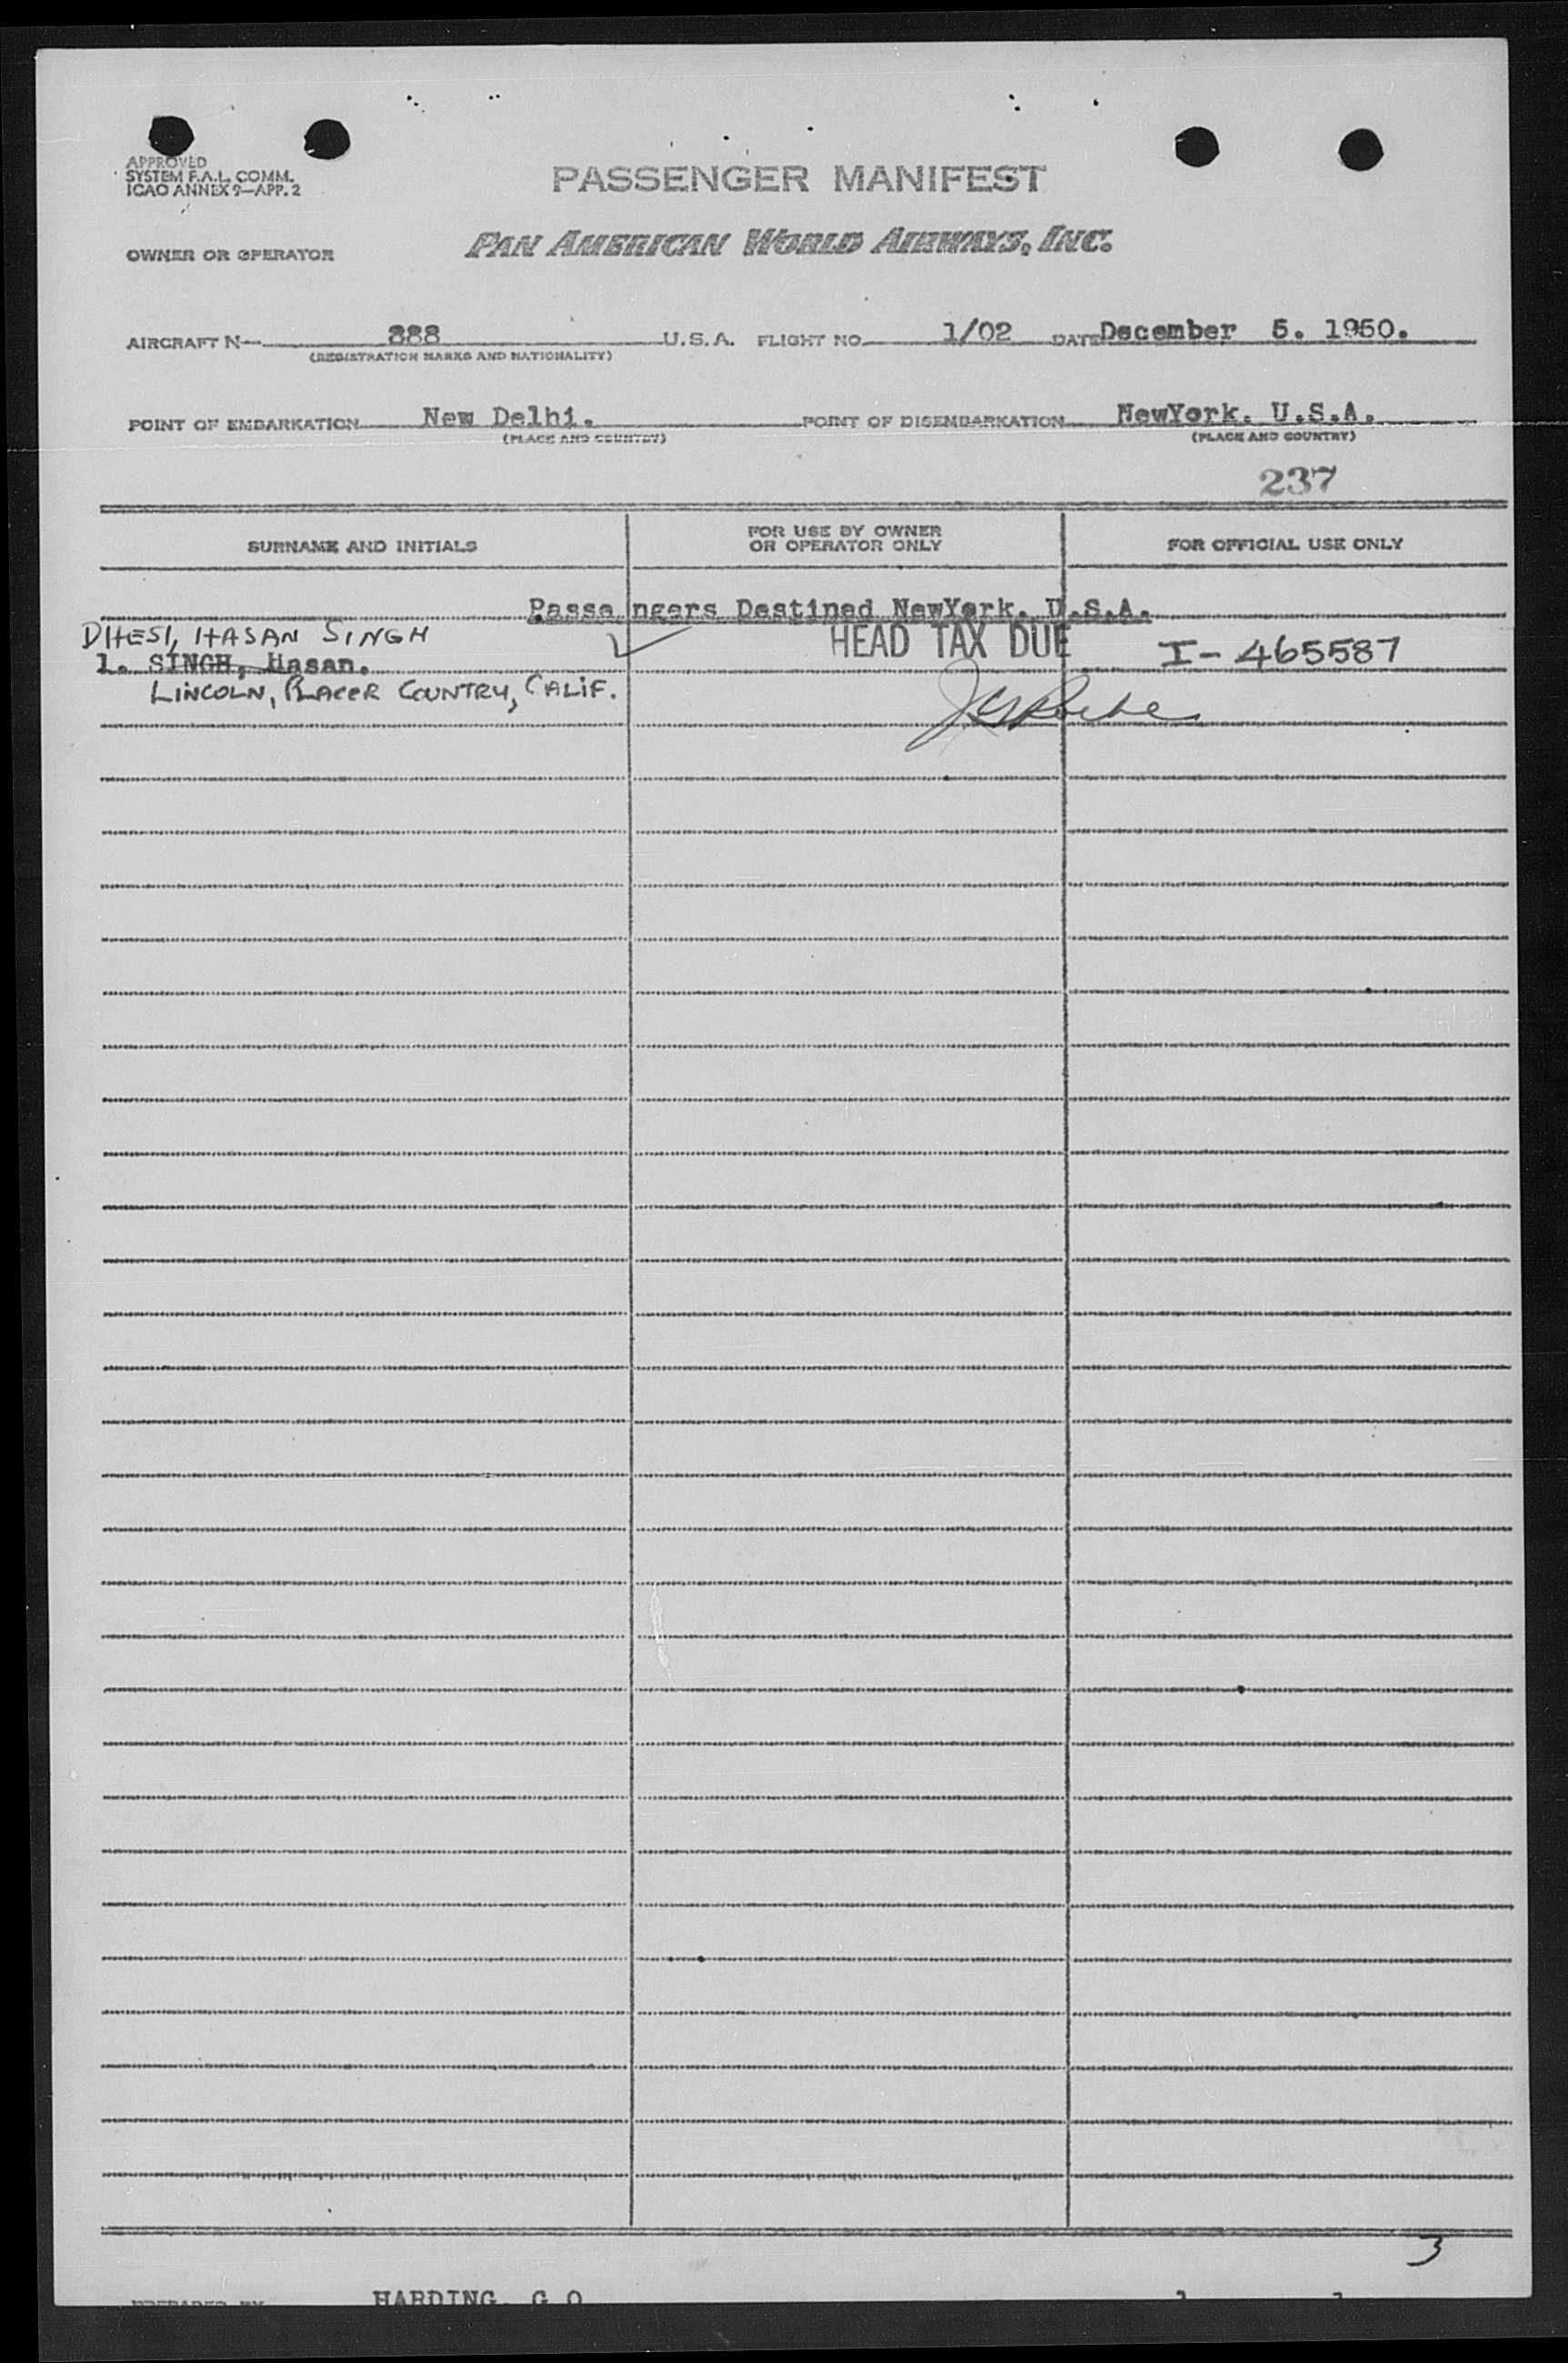 APPROVED
SYSTEM F.A.L. COMM.
ICAO ANNEX 9—APP. 2
PASSENGER MANIFEST
OWNER OR OPERATOR
PAN AMERICAN WORLD AIRWAYS, INC.
AIRCRAFT N— 888 U.S.A. FLIGHT NO. 1/02 DATE December 5. 1950.
(REGISTRATION MARKS AND NATIONALITY)
POINT OF EMBARKATION New Delhi. POINT OF DISEMBARKATION NewYork. U.S.A.
(PLACE AND COUNTRY) (PLACE AND COUNTRY)
237
SURNAME AND INITIALS FOR USE BY OWNER OR OPERATOR ONLY FOR OFFICIAL USE ONLY
Passengers Destined NewYork. U.S.A.
DHESI, HASAN SINGH HEAD TAX DUE
1. SINGH, Hasan. I-465587
LINCOLN, PLACER COUNTRY, CALIF.
3
PREPARED BY HARDING. G.O